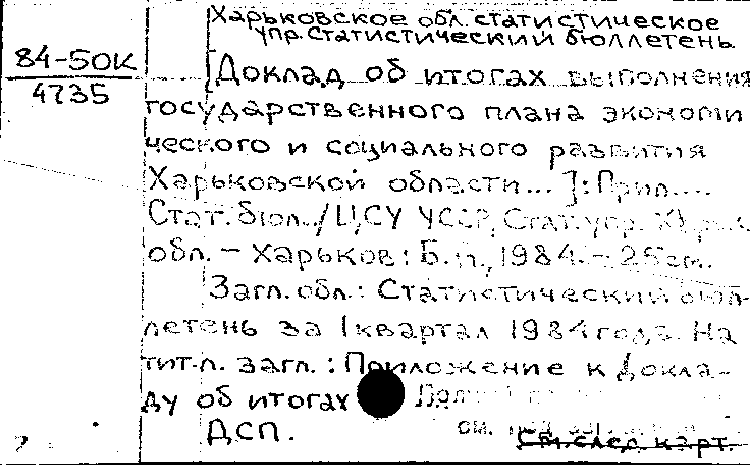 Харьковское обл. статистическое
упр. Статистический бюллетень
84-50К
4735
[Доклад об итогах выполнения
государственного плана экономи
ческого и социального развития
Харьковской области... ]: Прил....
Стат. бюл. / ЦСУ УССР, Стат. упр. Харьк.
обл. - Харьков: Б.и., 1984. - 25 см.
Загл. обл.: Статистический бюл-
летень за I квартал 1984 года. На
тит. л. загл.: Приложение к докла-
ду об итогах
ДСП.
см. под
См. след. карт.